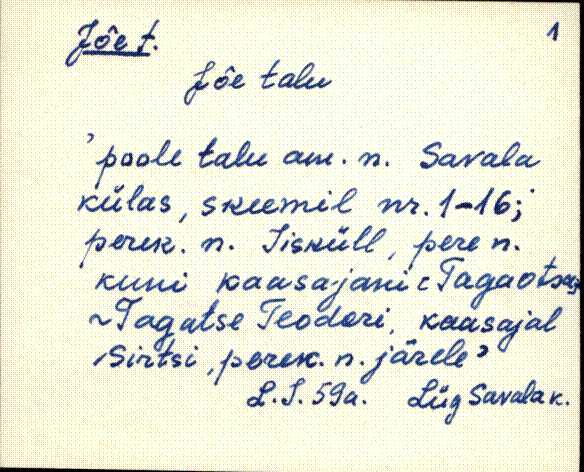 Jõe t. 1
Jõe talu
'poole talu am. n. Savala
külas, skeemil nr. 1-16;
perek. n. Iisküll, pere n.
kuni kaasajani
~Tagatse Teodori, kaasajal
Sirtsi, perek. n. järele'
L.I. 59a. Lüg Savala k.